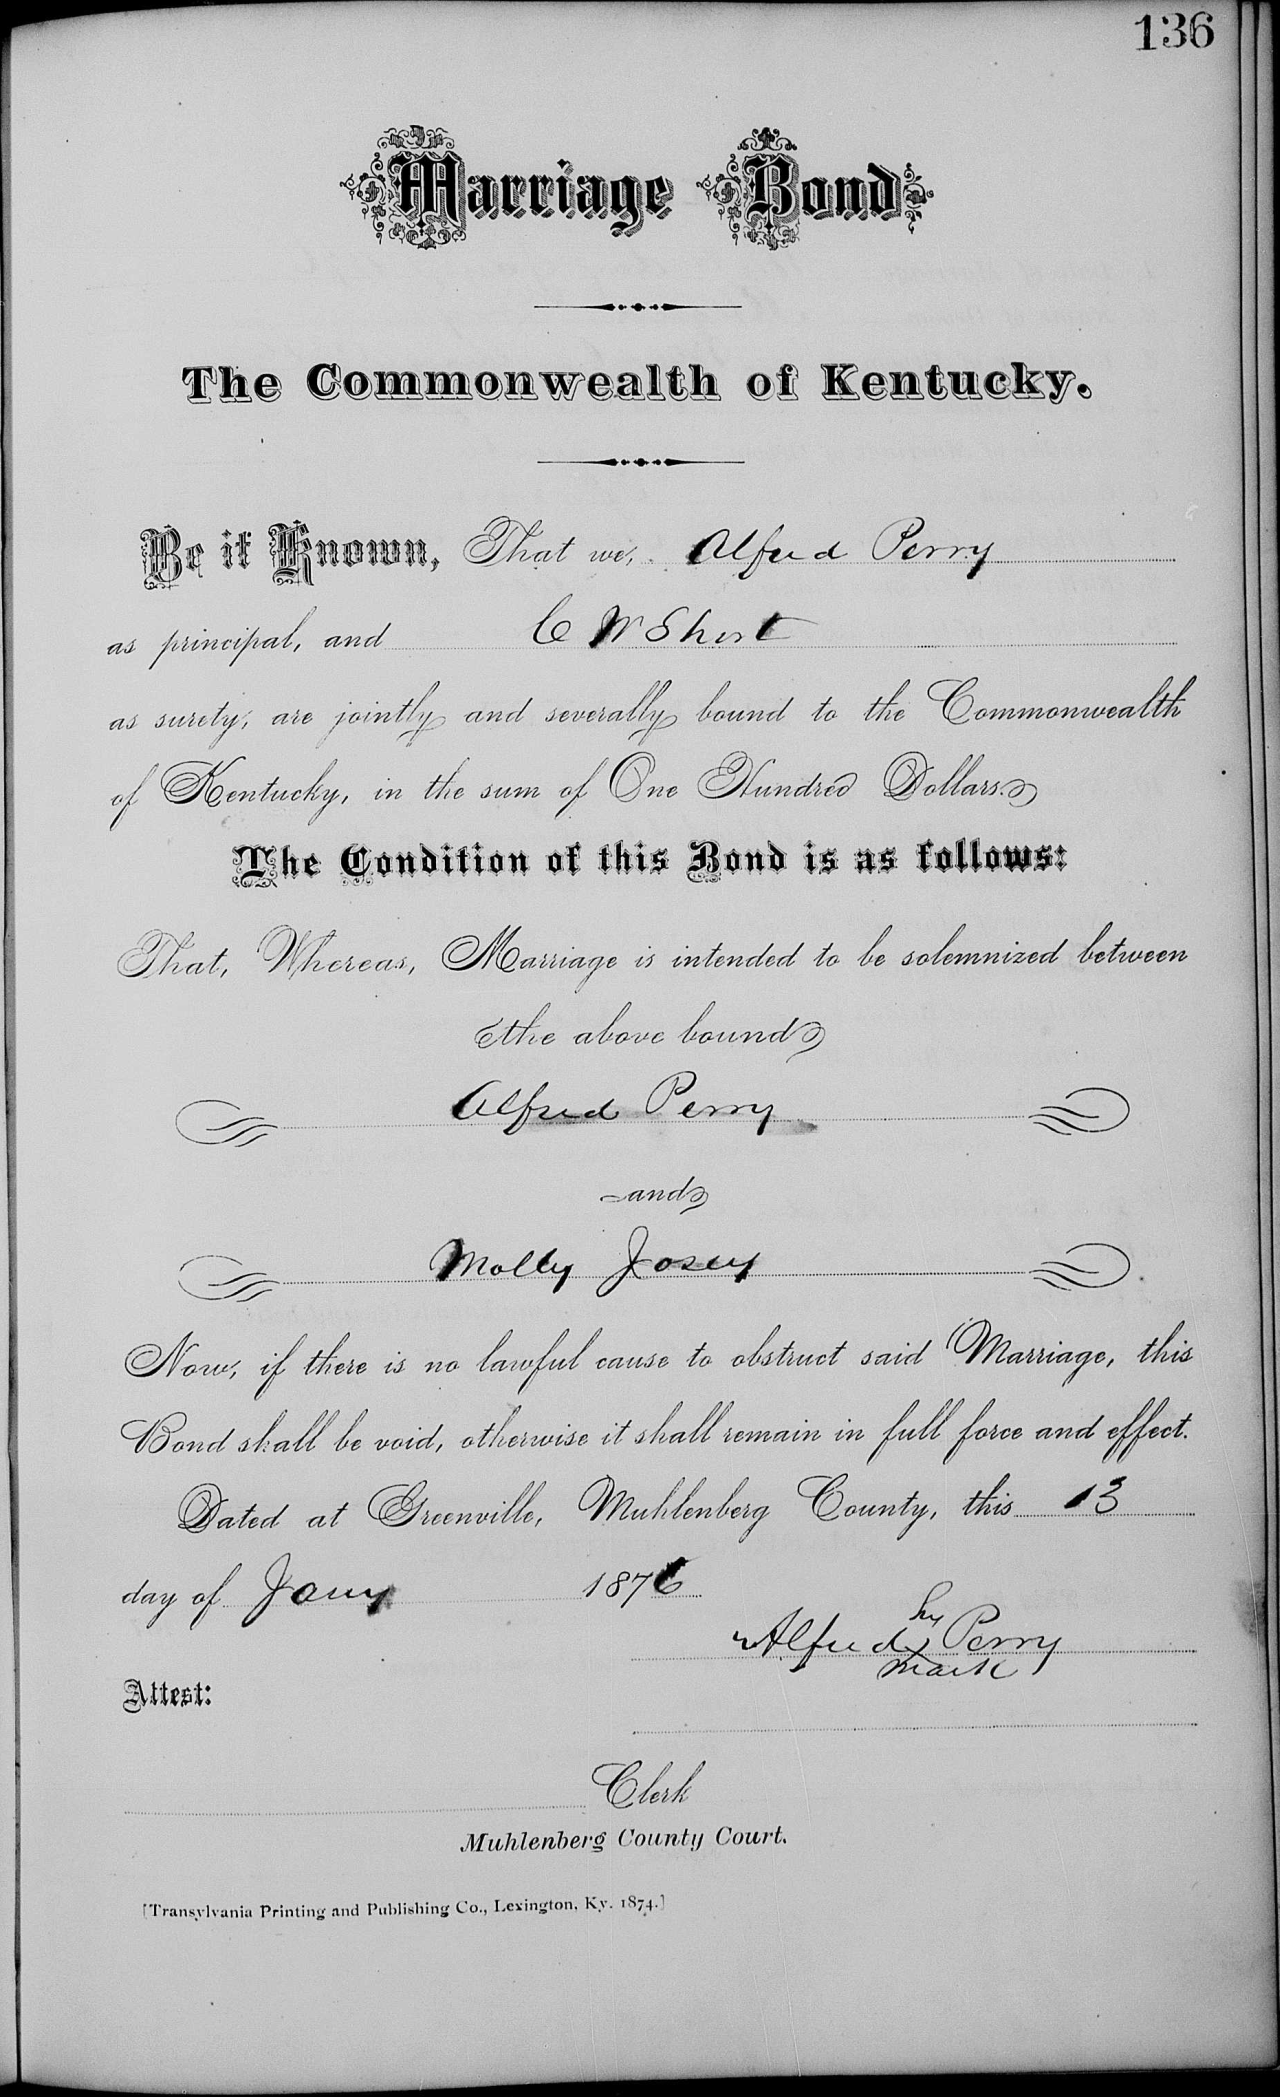 136
Marriage Bond
The Commonwealth of Kentucky.
Be it Known, That we, Alfred Perry
as principal, and C W Short
as surety, are jointly and severally bound to the Commonwealth
of Kentucky, in the sum of One Hundred Dollars.
The Condition of this Bond is as follows:
That, Whereas, Marriage is intended to be solemnized between
the above bound
Alfred Perry
and
Molly Josey
Now, if there is no lawful cause to obstruct said Marriage, this
Bond shall be void, otherwise it shall remain in full force and effect.
Dated at Greenville, Muhlenberg County, this 13
day of Jany 1876
his
Alfred x Perry
mark
Attest:
Clerk
Muhlenberg County Court.
[Transylvania Printing and Publishing Co., Lexington, Ky. 1874.]